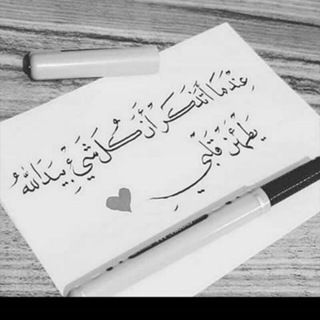 عِنْدَمَا أَتَذَكَّر أَنَّ كُلَ شَيْءٍ بِيَدِ اللّٰهُ
يَطْمَئِنْ قَلْبِي